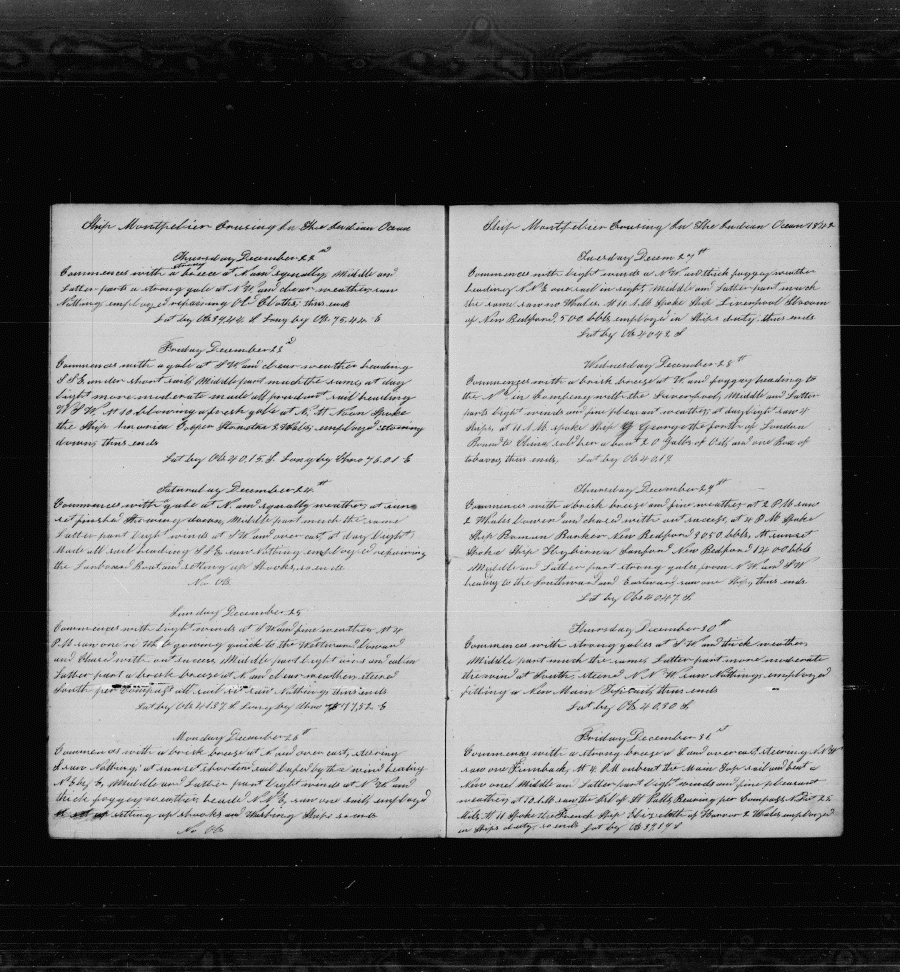 Ship Montpelier Crusing In The Indian Ocean
Thursday December 22nd
Commences with a strong breeze at N and squally, Middle and
Latter parts a strong gale at N W and clear weather saw
Nothing employed repairing Old Cloths, thus ends
Lat by Obs 39,44 S Long by Obs 75.44 E
Friday December 23d
Commences with a gale at S W and clear weather heading
S S E under short sail, Middle part much the same, at day
light more moderate made all prudent sail heading
W S W, At 10 blowing a fresh gale at N, At Noon Spoke
the Ship America 2 Whales employed stowing
down, thus ends
Lat by Obs 40.15 S. Long by Chro 76.01 E
Saturday December 24th
Commences with gale at N and squally weather, at sun
set finished stowing down, Middle part much the same
Latter part light winds at S W and over cast, at day light
Made all sail heading S S E saw Nothing employed repairing
the Larboard Boat and setting up Shooks, so ends
No Obs
Sunday December 25
Commences with Light winds at S W and fine weather At 4
P.M saw one going quick to the Westward Lowered
and Chased with out success, Middle part light airs and calm
Latter part a brock breeze at N and clear weather, steered
South per Compass all sail saw Nothing, thus ends
Lat by Obs 41.37 S Long by Chro 77,52 E
Monday December 26th
Commences with a brock breeze at N and over cast, steering
S saw Nothing, at sunset shorten sail by the wind heading
Middle and Latter part light winds at N W and
thick foggey weather heads N N E, saw one sail, employed
setting up shooks and Ships so ends
No Obs
Ship Montpelier Crusing In The Indian Ocean 1842
Tuesday Decem 27th
Commences with light winds a N W and thick foggey weather
heading N N E one sail in sight, Middle and Latter part much
the same saw no Whales, At 10 A.M Spoke Ship Liverpool
of New Bedford, 500 bbls, employed in Ships duty, thus ends
Lat by Obs 40 48. S
Wednesday December 28th
Commences with a brock breeze at W and foggey heading to
the N in Company with the Liverpool, Middle and Latter
parts light winds and fine pleasant weather, at daylight saw 4
Ships, at 11 A.M. spoke Ship George the fourth of London
Bound to China, sold her about 20 Galls of Oil, and one Box of
tobacco, thus ends, Lat by Obs 40.19.
Thursday December 29th
Commences with a brock breeze and fine weather at 2 P.M saw
2 Whales Lowerd and chased with out success, at 4 P.M Spoke
Ship Roman Barker New Bedford 3050 bbls, At sunset
Spoke Ship Hydinna Sanford New Bedford 1400 bbls
Middle and Latter part strong gales from N W and S W
heading to the Southward and Eastward, saw one Ship, thus ends
Lat by Obs 40 47. S
Thursday December 30th
Commences with strong gales at S W and thick weather
Middle part much the same, Latter part more moderate
the wind at South, steerd N N W saw Nothing, employed
fitting a New Main Topsail, thus ends
Lat by Obs 40.30 S
Friday December 31st
Commences with a strong breeze at S and over cast, steering N N W
saw one Finback, At 4 P.M unbent the Main Top sail and bent a
New one, Middle and Latter part light winds and fine pleasant
weather, at 10 A.M saw the Isl of St Pauls, Bearing per Compass N Dist 25
Mils, At 11 Spoke the French Ship of Havor 2 Whales employed
in Ships duty, so ends Lat by Obs 39,19 S